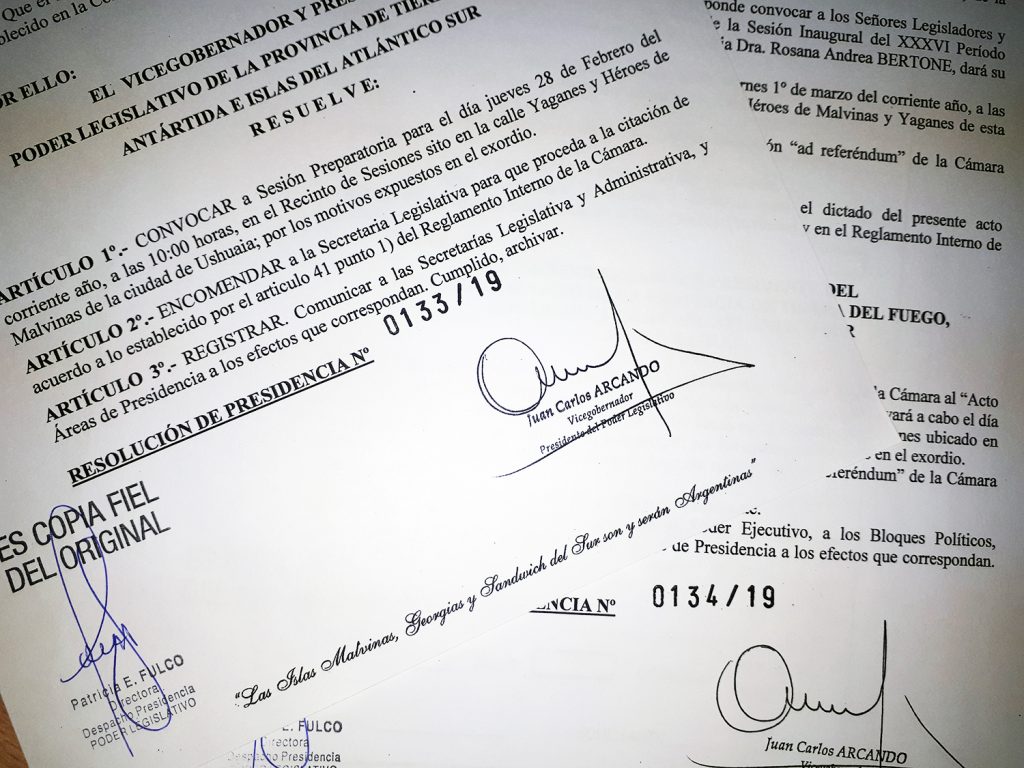 Que el
blecido en la Co
OR ELLO:
EL VICEGOBERNADOR Y PRES
PODER LEGISLATIVO DE LA PROVINCIA DE TIER
ANTÁRTIDA E ISLAS DEL ATLÁNTICO SUR
R E S U E L V E:
ARTÍCULO 1º.- CONVOCAR a Sesión Preparatoria para el día jueves 28 de Febrero del
corriente año, a las 10:00 horas, en el Recinto de Sesiones sito en la calle Yaganes y Héroes de
Malvinas de la ciudad de Ushuaia; por los motivos expuestos en el exordio.
ARTÍCULO 2º.- ENCOMENDAR a la Secretaria Legislativa para que proceda a la citación de
acuerdo a lo establecido por el articulo 41 punto 1) del Reglamento Interno de la Cámara.
ARTÍCULO 3º.- REGISTRAR. Comunicar a las Secretarías Legislativa y Administrativa, y
Áreas de Presidencia a los efectos que correspondan. Cumplido, archivar.
RESOLUCIÓN DE PRESIDENCIA Nº 0133/19
Juan Carlos ARCANDO
Vicegobernador
Presidente del Poder Legislativo
ES COPIA FIEL
DEL ORIGINAL
Patricia E. FULCO
Directora
Despacho Presidencia
PODER LEGISLATIVO
"Las Islas Malvinas, Georgias y Sandwich del Sur son y serán Argentinas"
ponde convocar a los Señores Legisladores y
e la Sesión Inaugural del XXXVI Período
a Dra. Rosana Andrea BERTONE, dará su
rnes 1º de marzo del corriente año, a las
Héroes de Malvinas y Yaganes de esta
ón "ad referéndum" de la Cámara
el dictado del presente acto
y en el Reglamento Interno de
DEL
DEL FUEGO,
R
la Cámara al "Acto
vará a cabo el día
nes ubicado en
en el exordio.
referéndum" de la Cámara
der Ejecutivo, a los Bloques Políticos,
de Presidencia a los efectos que correspondan.
ENCIA Nº 0134/19
Juan Carlos ARCANDO
Vicegobernador
E. FULCO
Directora
Despacho Presidencia